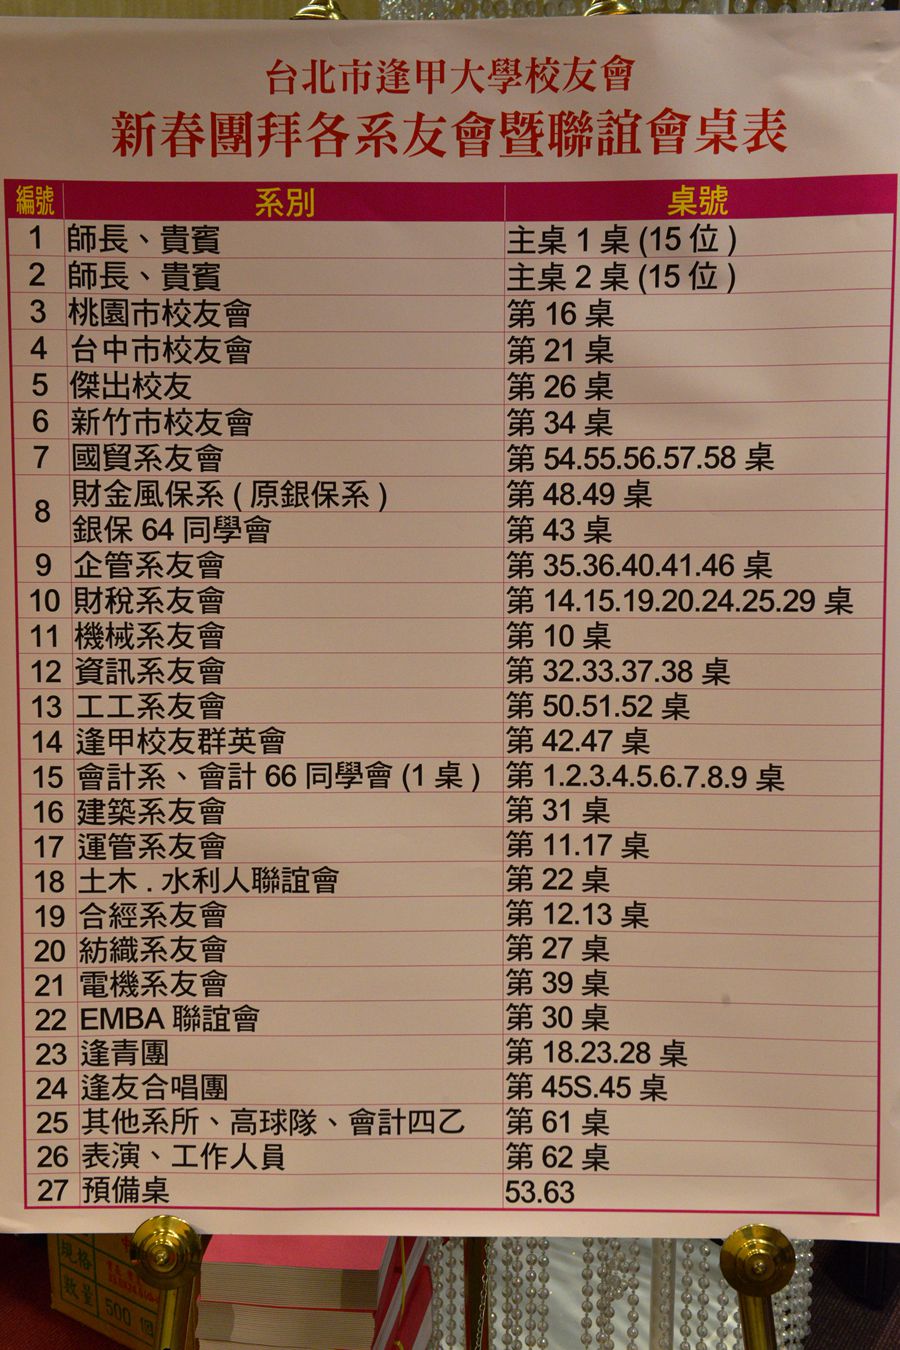 台北市逢甲大學校友會
新春團拜各系友會暨聯誼會桌表
編號 系別 桌號
1 師長、貴賓 主桌 1 桌 (15 位)
2 師長、貴賓 主桌 2 桌 (15 位)
3 桃園市校友會 第 16 桌
4 台中市校友會 第 21 桌
5 傑出校友 第 26 桌
6 新竹市校友會 第 34 桌
7 國貿系友會 第 54.55.56.57.58 桌
8 財金風保系 ( 原銀保系 ) 第 48.49 桌
銀保 64 同學會 第 43 桌
9 企管系友會 第 35.36.40.41.46 桌
10 財稅系友會 第 14.15.19.20.24.25.29 桌
11 機械系友會 第 10 桌
12 資訊系友會 第 32.33.37.38 桌
13 工工系友會 第 50.51.52 桌
14 逢甲校友群英會 第 42.47 桌
15 會計系、會計 66 同學會 (1 桌) 第 1.2.3.4.5.6.7.8.9 桌
16 建築系友會 第 31 桌
17 運管系友會 第 11.17 桌
18 土木 . 水利人聯誼會 第 22 桌
19 合經系友會 第 12.13 桌
20 紡織系友會 第 27 桌
21 電機系友會 第 39 桌
22 EMBA 聯誼會 第 30 桌
23 逢青團 第 18.23.28 桌
24 逢友合唱團 第 45S.45 桌
25 其他系所、高球隊、會計四乙 第 61 桌
26 表演、工作人員 第 62 桌
27 預備桌 53.63
規格
數量 500 個